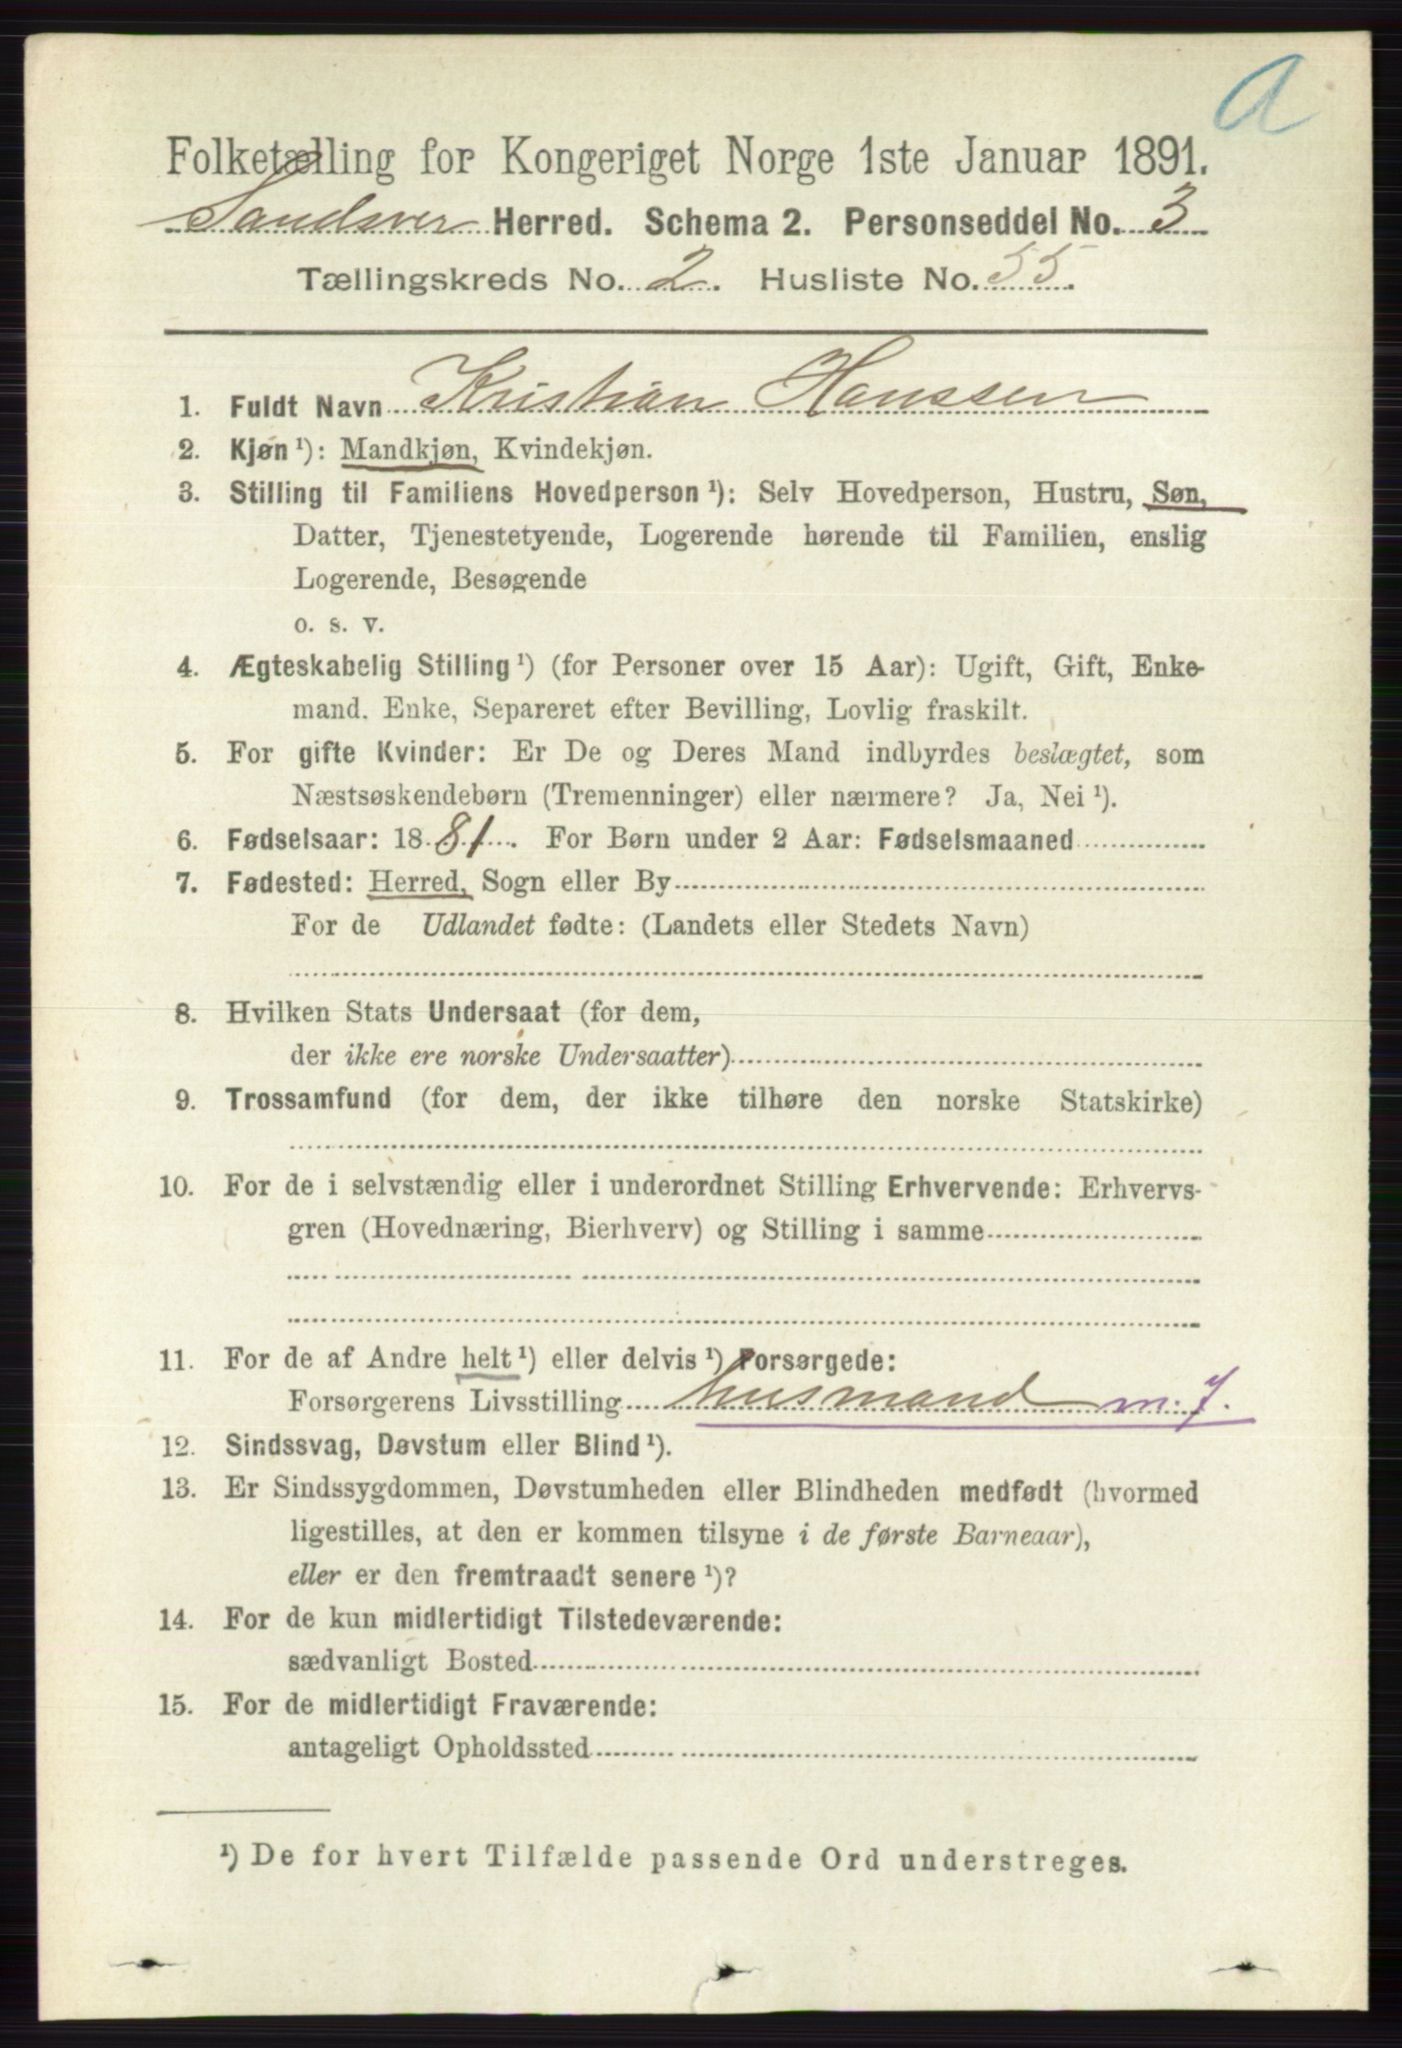 a
Folketælling for Kongeriget Norge 1ste Januar 1891.
Sandsver Herred. Schema 2. Personseddel No. 3
Tællingskreds No. 2. Husliste No. 55.
1. Fuldt Navn Kristian Hanssen
2. Kjøn ¹): Mandkjøn, Kvindekjøn.
3. Stilling til Familiens Hovedperson ¹): Selv Hovedperson, Hustru, Søn,
Datter, Tjenestetyende, Logerende hørende til Familien, enslig
Logerende, Besøgende
o. s. v.
4. Ægteskabelig Stilling ¹) (for Personer over 15 Aar): Ugift, Gift, Enke-
mand. Enke, Separeret efter Bevilling, Lovlig fraskilt.
5. For gifte Kvinder: Er De og Deres Mand indbyrdes beslægtet, som
Næstsøskendebørn (Tremenninger) eller nærmere? Ja, Nei ¹).
6. Fødselsaar: 1881. For Børn under 2 Aar: Fødselsmaaned
7. Fødested: Herred, Sogn eller By
For de Udlandet fødte: (Landets eller Stedets Navn)
8. Hvilken Stats Undersaat (for dem,
der ikke ere norske Undersaatter)
9. Trossamfund (for dem, der ikke tilhøre den norske Statskirke)
10. For de i selvstændig eller i underordnet Stilling Erhvervende: Erhvervs-
gren (Hovednæring, Bierhverv) og Stilling i samme
11. For de af Andre helt ¹) eller delvis ¹) Forsørgede:
Forsørgerens Livsstilling husmand m. J.
12. Sindssvag, Døvstum eller Blind ¹).
13. Er Sindssygdommen, Døvstumheden eller Blindheden medfødt (hvormed
ligestilles, at den er kommen tilsyne i de første Barneaar),
eller er den fremtraadt senere ¹)?
14. For de kun midlertidigt Tilstedeværende:
sædvanligt Bosted
15. For de midlertidigt Fraværende:
antageligt Opholdssted
¹) De for hvert Tilfælde passende Ord understreges.